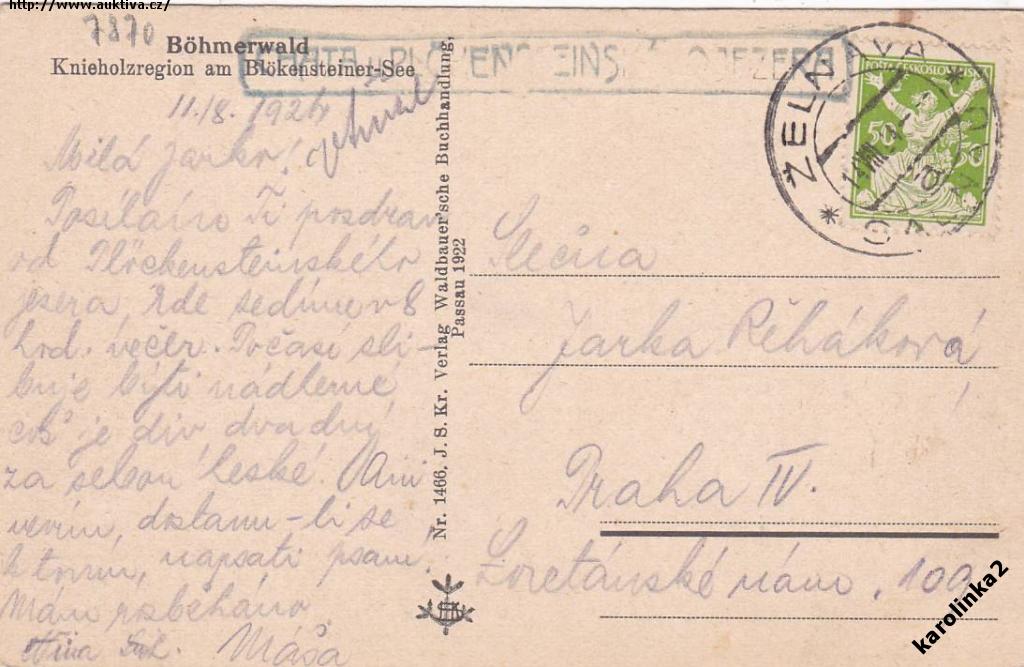 http://www.auktiva.cz/
7870
Böhmerwald
Knieholzregion am Blökensteiner-See
CHATA PLÖKENSTEINSKÉHO JEZERA
11./8. 1924
Milá Jarko!
Posílám Ti pozdrav
od Plöckensteinského
jezera, kde sedíme v 8
hod. večer. Počasí sli-
buje býti nádherné,
což je div dva dny
za sebou hezké. Ani
nevím, dostanu-li se
k tomu, napsati psaní.
Mám rozběháno.
Máša
Nr. 1466. J. S. Kr. Verlag Waldbauer'sche Buchhandlung,
Passau 1922
POŠTA ČESKOSLOVENSKÁ
50 50
ŽELNAVA
Slečna
Jarka Řeháková
Praha IV.
Loretánské nám. 109
karolinka2